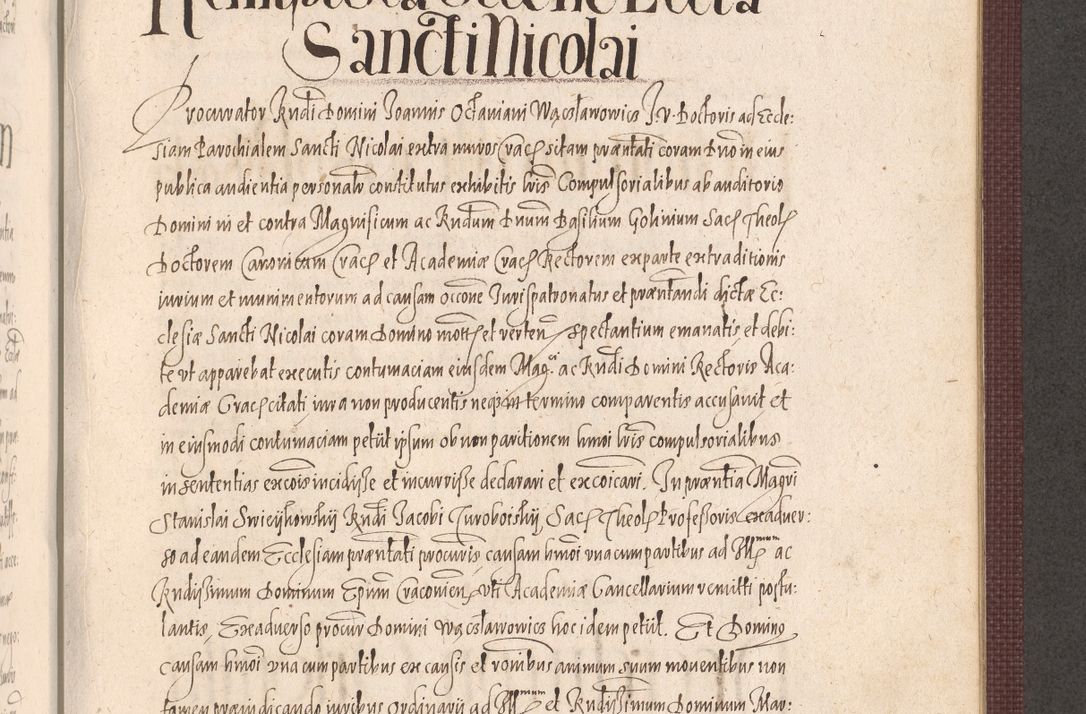 Sancti Nicolai
Procurator Rndi Domini Joannis Octaviani Wącsławowics J. v. Doctoris ad Eccle:
siam Parochialem Sancti Nicolai extra muros Crac sitam præntati coram Dno in eius
publica audientia personalr constitutus exhibitis lris Compulsorialibus ab auditorio
Domini in et contra Magnificum ac Rndum Dnum Basilium Golinium Sac Theol
Doctorem Canonicum Crac et Academiæ Crac Rectorem ex parte extraditionis
iurium et munimentorum ad causam occone Jurispatronatus et præntandi dictæ Ec:
clesiæ Sancti Nicolai coram Domino mott et verten spectantium emanatis et debi:
te vt apparebat executis contumaciam eiusdem Mag.ci ac Rndi Domini Rectoris Aca:
demiæ Crac citati iura non producentis neq in termino comparentis accusavit et
in eiusmodi contumaciam petiit ipsum ob non paritionem hmoi lris compulsorialibus
in sententias excois incidisse et incurrisse declarari et excoicari. In præntia Magri
Stanislai Swieijhowskij Rndi Jacobi Turoboiskij Sac Theol Professoris ex aduer:
so ad eandem Ecclesiam præntati procuris causam hmoi vna cum partibus ad Illmum ac
Rndissimum Dominum Epum Cracovien vti Academiæ Cancellarium remitti postu:
lantis, Ex aduerso procur Domini Wącsławowics hoc idem petiit. Et Domino
causam hmoi vna cum partibus ex causis et ronibus animum suum mouentibus non
tamen præiudicando iuribus Ordinarij ad Illmum et Rndissimum Dominum Mar: